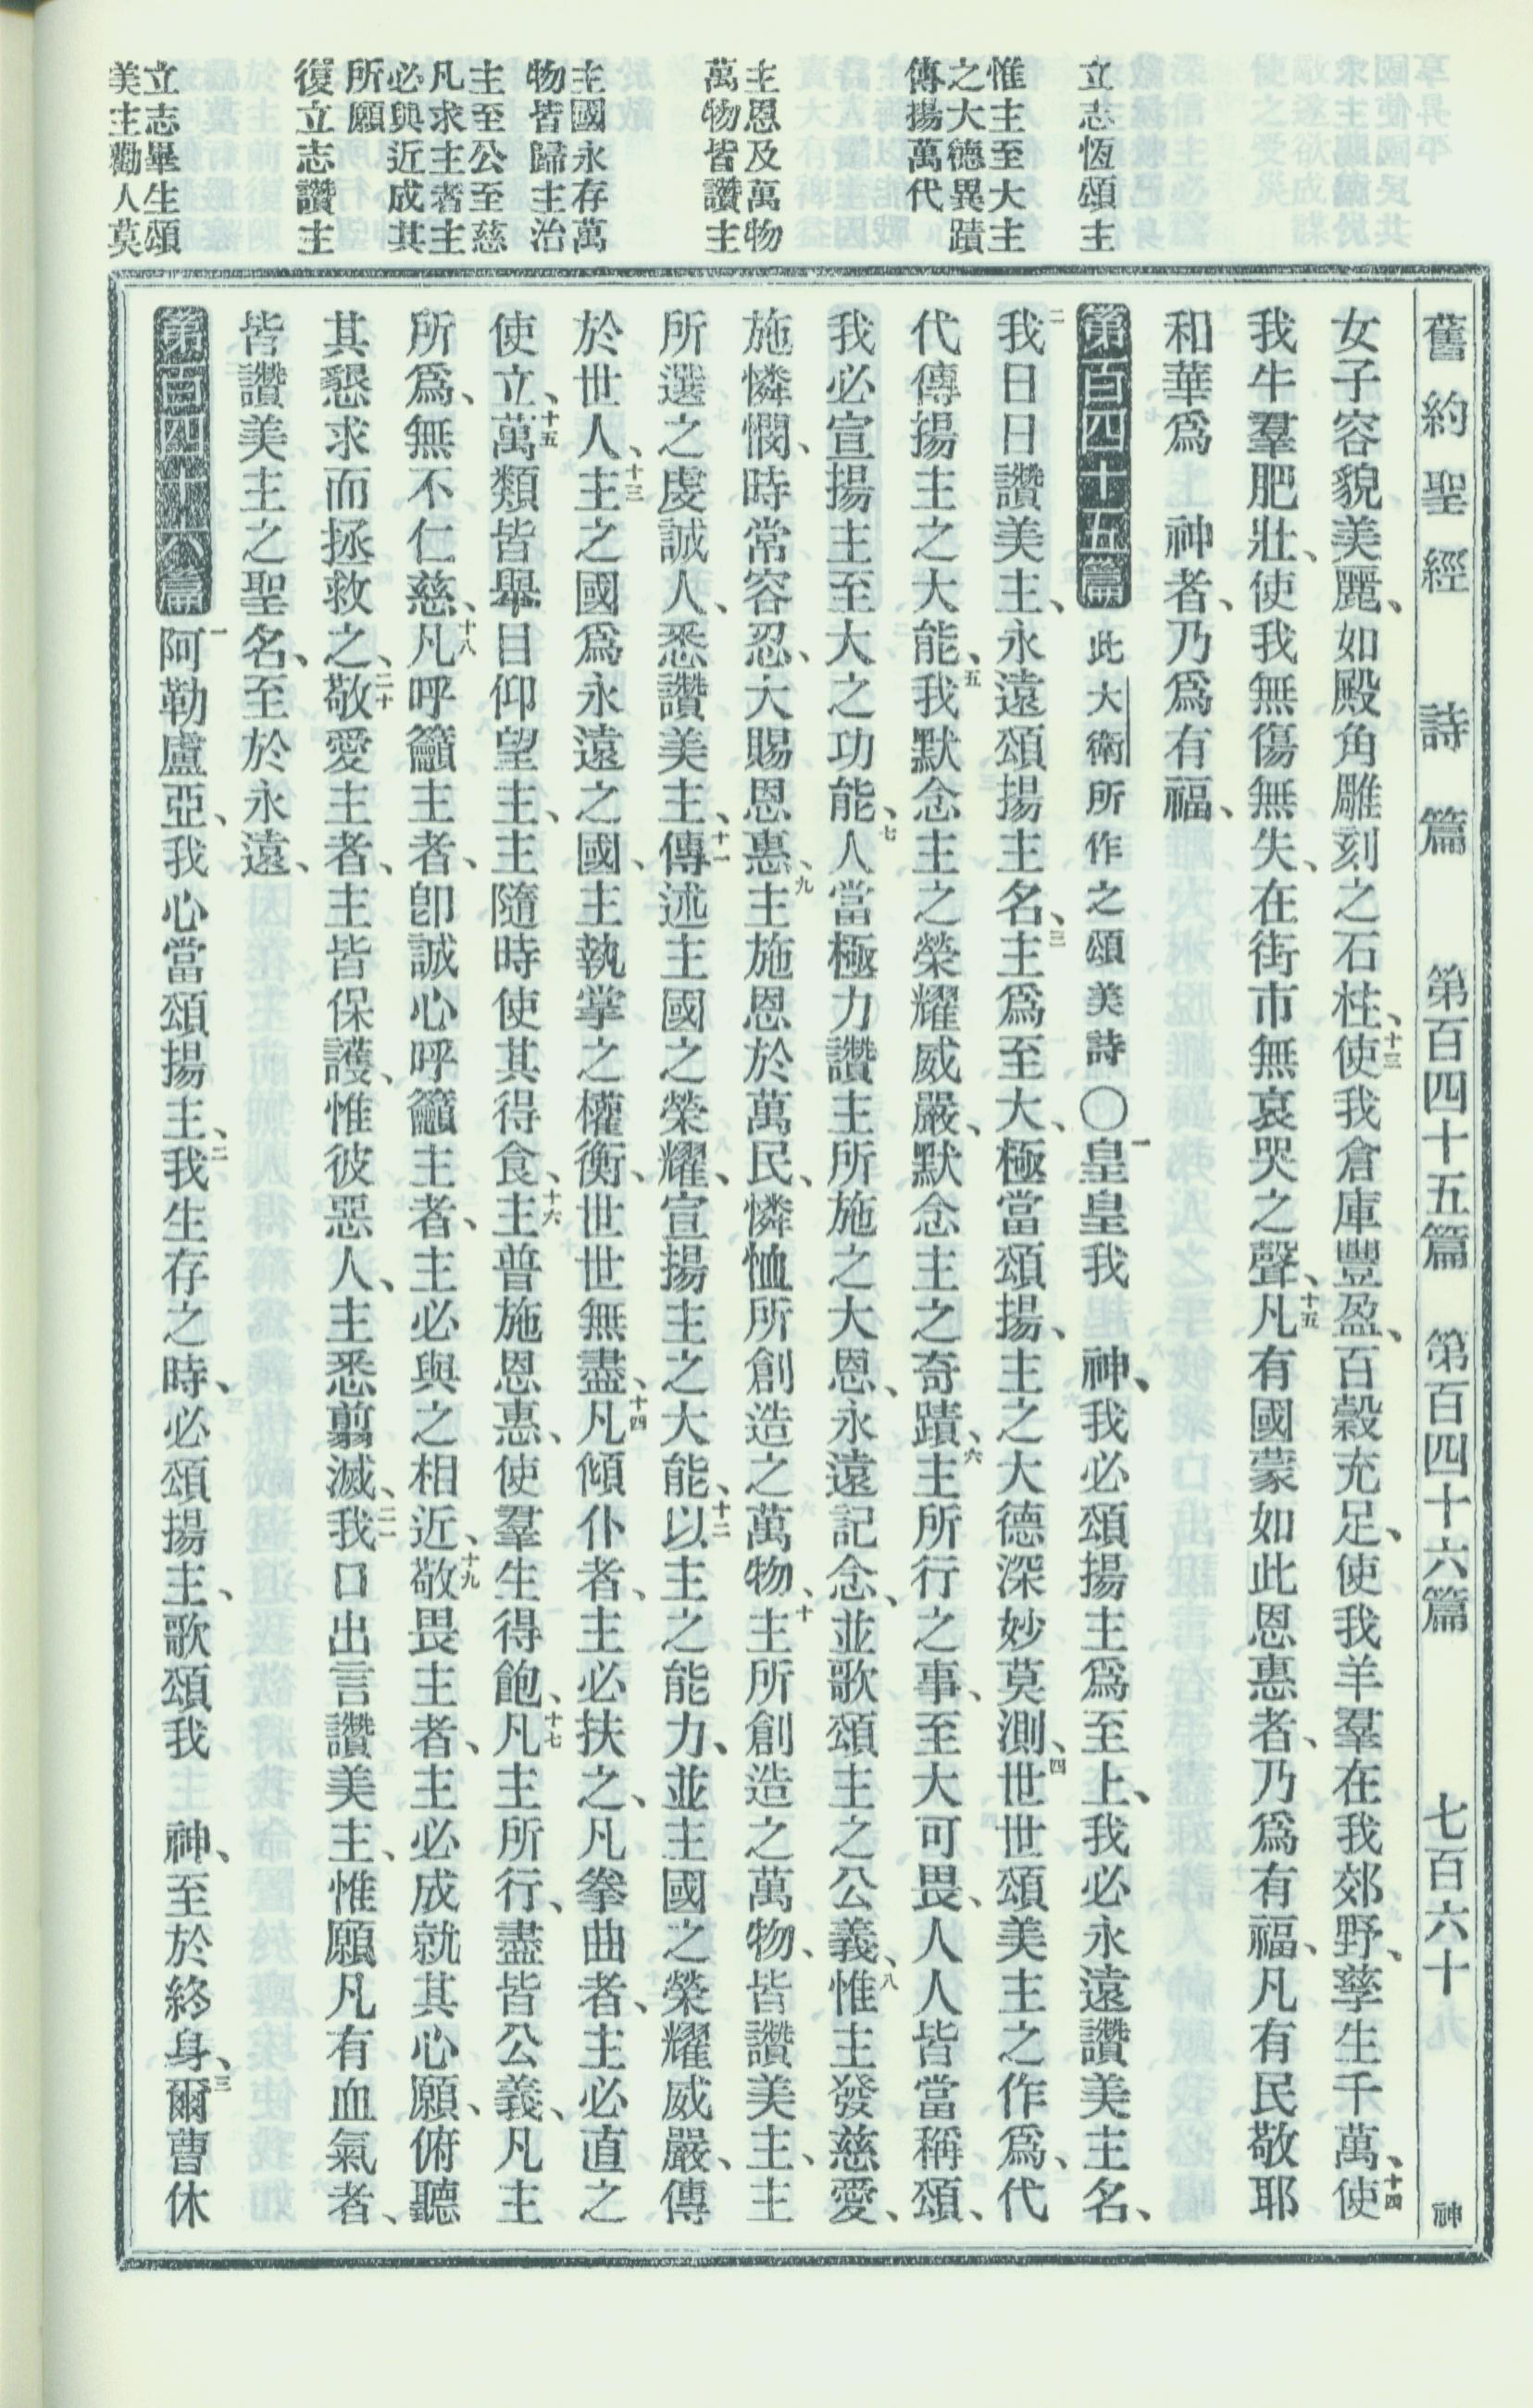 舊約聖經 詩篇 第百四十五篇 第百四十六篇 七百六十 神
女子容貌美麗、如殿角雕刻之石柱、十三使我倉庫豐盈、百穀充足、使我羊羣在我郊野、孳生千萬、十四使
我牛羣肥壯、使我無傷無失、在街市無哀哭之聲、十五凡有國蒙如此恩惠者、乃爲有福、凡有民敬耶
和華爲 神者、乃爲有福、
立志恆頌主
第百四十五篇 此大衛所作之頌美詩 〇一皇皇我 神、我必頌揚主爲至上、我必永遠讚美主名、
惟主至大主
之大德異蹟
傳揚萬代
二我日日讚美主、永遠頌揚主名、三主爲至大、極當頌揚、主之大德深妙莫測、四世世頌美主之作爲、代
代傳揚主之大能、五我默念主之榮耀威嚴、默念主之奇蹟、六主所行之事、至大可畏、人人皆當稱頌、
我必宣揚主至大之功能、七人當極力讚主所施之大恩、永遠記念、並歌頌主之公義、八惟主發慈愛、
主恩及萬物
萬物皆讚主
施憐憫、時常容忍、大賜恩惠、九主施恩於萬民、憐恤所創造之萬物、十主所創造之萬物、皆讚美主、主
所選之虔誠人、悉讚美主、十一傳述主國之榮耀、宣揚主之大能、十二以主之能力、並主國之榮耀威嚴、傳
主國永存萬
物皆歸主治
於世人、十三主之國爲永遠之國、主執掌之權衡、世世無盡、十四凡傾仆者、主必扶之、凡拳曲者、主必直之
主至公至慈
凡求主者主
必與近成其
所願
使立、十五萬類皆舉目仰望主、主隨時使其得食、十六主普施恩惠、使羣生得飽、十七凡主所行、盡皆公義、凡主
所爲、無不仁慈、十八凡呼籲主者、卽誠心呼籲主者、主必與之相近、十九敬畏主者、主必成就其心願、俯聽
復立志讚主
其懇求而拯救之、二十敬愛主者、主皆保護、惟彼惡人、主悉翦滅、二一我口出言讚美主、惟願凡有血氣者、
皆讚美主之聖名、至於永遠、
立志畢生頌
美主勸人莫
第百四十六篇 一阿勒盧亞、我心當頌揚主、二我生存之時、必頌揚主、歌頌我 神、至於終身、三爾曹休